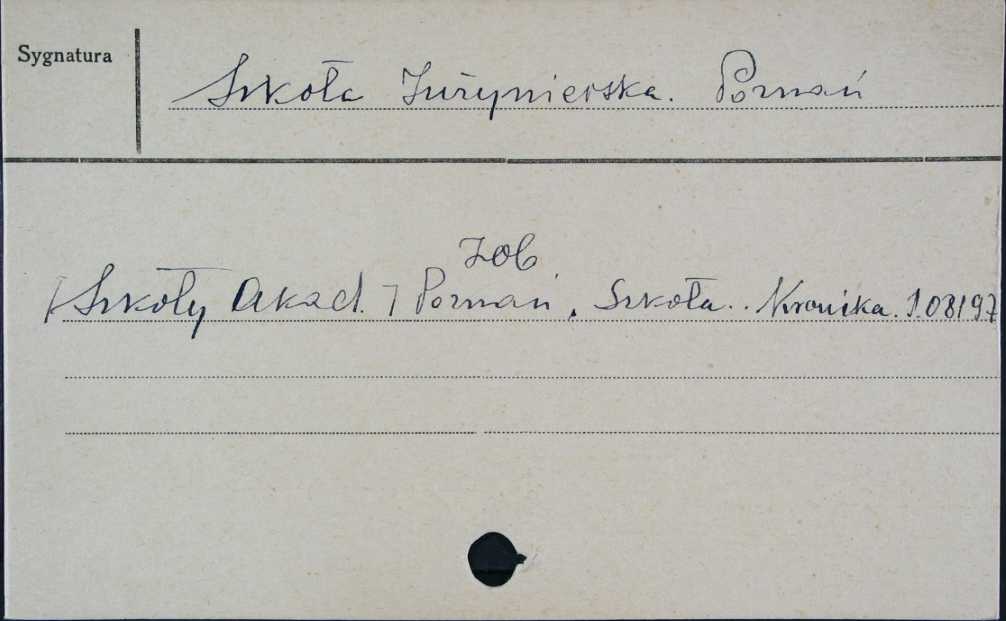 Sygnatura
Szkoła Inżynierska. Poznań
zob
[Szkoły Akad.] Poznań, Szkoła. Kronika.